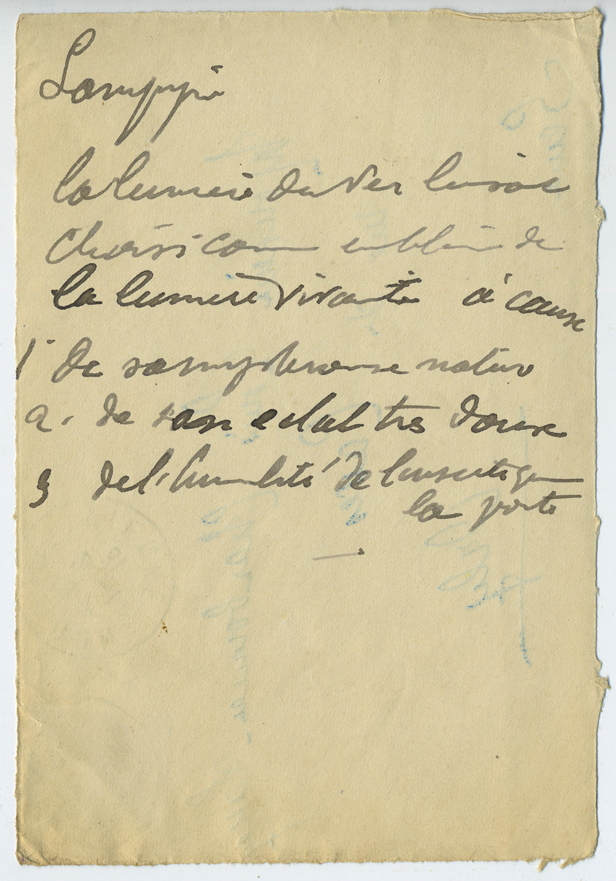 Lampyri
la lumière du Ver luisant
choisi comme emblème de
la lumière vivante à cause
1° de sa mystérieuse nature
2. de son eclat très doux
3 de l'humilité de l'insecte qui
la porte